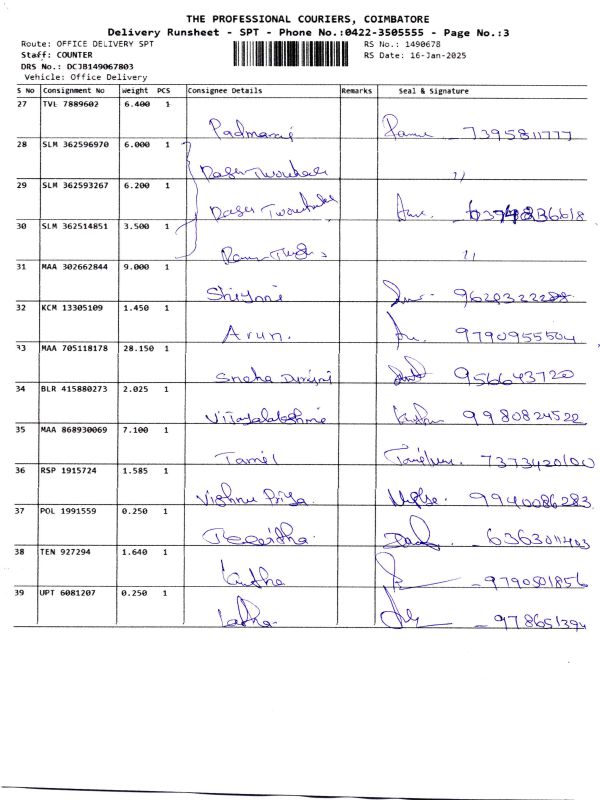 THE PROFESSIONAL COURIERS, COIMBATORE
Delivery Runsheet - SPT - Phone No.:0422-3505555 - Page No.:3
Route: OFFICE DELIVERY SPT RS No.: 1490678
Staff: COUNTER RS Date: 16-Jan-2025
DRS No.: DCJB149067803
Vehicle: Office Delivery
S No Consignment No Weight PCS Consignee Details Remarks Seal & Signature
27 TVL 7889602 6.400 1
Padmavi 7395811777
28 SLM 362596970 6.000 1
29 SLM 362593267 6.200 1
30 SLM 362514851 3.500 1
31 MAA 302662844 9.000 1
32 KCM 13305109 1.450 1
Arun. 9790955504
33 MAA 705118178 28.150 1
Sneha 956643720
34 BLR 415880273 2.025 1
Vijayalakshmi 9980824522
35 MAA 868930069 7.100 1
Tamil 7373420100
36 RSP 1915724 1.585 1
Vishnu Priya. 9940086283
37 POL 1991559 0.250 1
6363011403
38 TEN 927294 1.640 1
9790501856
39 UPT 6081207 0.250 1
Latha. 978651394